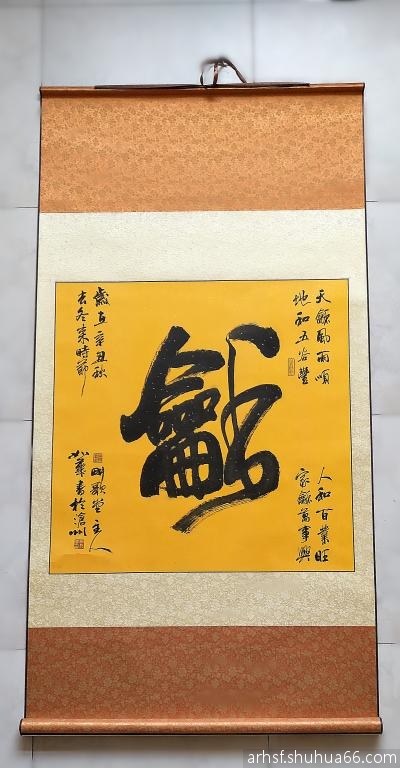 天龢風雨順
地和五谷豐
人和百業旺
家龢萬事興
龢
歲在辛丑秋
去冬來時節
明歌堂主人
華書於滄州
arhsf.shuhua66.com